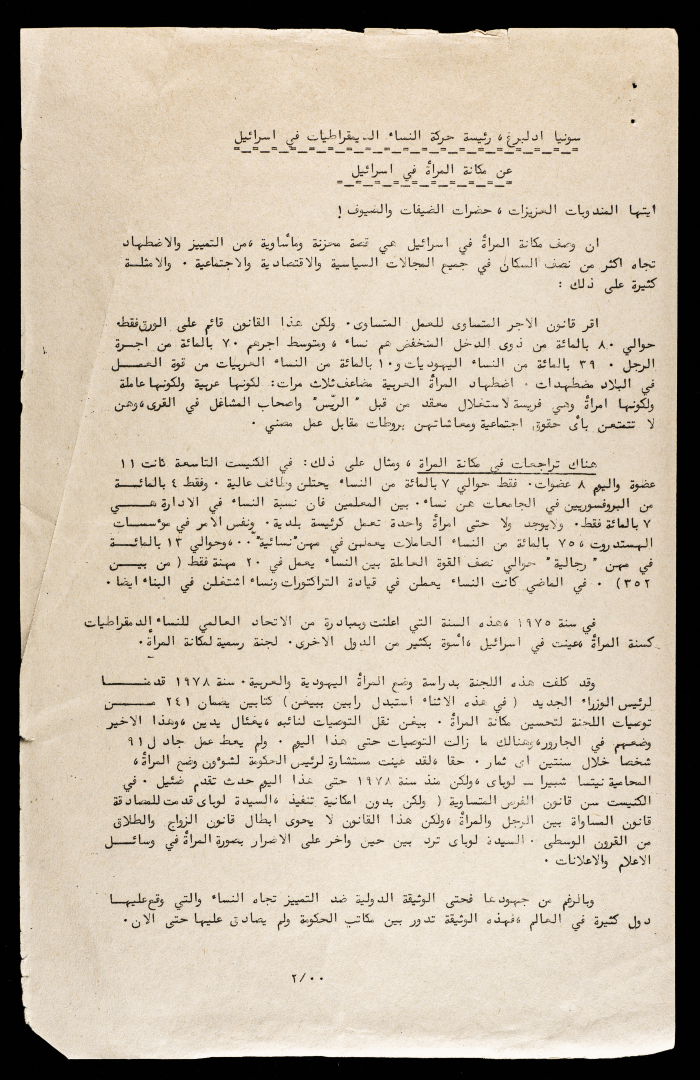 سونيا ادلبرغ، رئيسة حركة النساء الديمقراطيات في اسرائيل
عن مكانة المرأة في اسرائيل
ايتها المندوبات العزيزات، حضرات الضيفات والضيوف!
ان وصف مكانة المرأة في اسرائيل هي قصة محزنة ومأساوية، من التمييز والاضطهاد
تجاه اكثر من نصف السكان في جميع المجالات السياسية والاقتصادية والاجتماعية. والامثلة
كثيرة على ذلك:
اقر قانون الاجر المتساوى للعمل المتساوى. ولكن هذا القانون قائم على الورق فقط.
حوالي ٨٠ بالمائة من ذوى الدخل المنخفض هم نساء، ومتوسط اجرهم ٧٠ بالمائة من اجرة
الرجل. ٣٩ بالمائة من النساء اليهوديات و١٠ بالمائة من النساء العربيات من قوة العمل
في البلاد مضطهدات. اضطهاد المرأة العربية مضاعف ثلاث مرات: لكونها عربية ولكونها عاملة
ولكونها امرأة وهي فريسة لاستغلال معقد من قبل "الريّس" واصحاب المشاغل في القرى، وهن
لا تتمتعن بأى حقوق اجتماعية ومعاشاتهن بروطات مقابل عمل مضني.
هناك تراجعات في مكانة المرأة، ومثال على ذلك: في الكنيست التاسعة كانت ١١
عضوة واليوم ٨ عضوات. فقط حوالي ٧ بالمائة من النساء يحتلن وظائف عالية. وفقط ٤ بالمائة
من البروفسوريين في الجامعات هن نساء. بين المعلمين فان نسبة النساء في الادارة هي
٧ بالمائة فقط. ولايوجد ولا حتى امرأة واحدة تعمل كرئيسة بلدية. ونفس الامر في مؤسسات
الهستدروت، ٧٥ بالمائة من النساء العاملات يعملن في مهن "نسائية"..، وحوالي ١٣ بالمائة
في مهن "رجالية" حوالي نصف القوة العاملة بين النساء يعمل في ٢٠ مهنة فقط (من بين
٣٥٢). في الماضي كانت النساء يعملن في قيادة التراكتورات ونساء اشتغلن في البناء ايضا.
في سنة ١٩٧٥، هذه السنة التي اعلنت وبمبادرة من الاتحاد العالمي للنساء الدمقراطيات
كسنة المرأة، عينت في اسرائيل، أسوة بكثير من الدول الاخرى. لجنة رسمية لمكانة المرأة.
وقد كلفت هذه اللجنة بدراسة وضع المرأة اليهودية والعربية. سنة ١٩٧٨ قدمنا
لرئيس الوزراء الجديد (في هذه الاثناء استبدل رابين ببيغن) كتابين يضمان ٢٤١ من
توصيات اللجنة لتحسين مكانة المرأة. بيغن نقل التوصيات لنائبه، يغئال يدين، وهذا الاخير
وضعهم في الجارور، وهنالك ما زالت التوصيات حتى هذا اليوم. ولم يعط عمل جاد ل ٩١
شخصا خلال سنتين اى ثمار. حقا، لقد عينت مستشارة لرئيس الحكومة لشؤون وضع المرأة،
المحامية نيتسا شبيرا - لوباى، ولكن منذ سنة ١٩٧٨ حتى هذا اليوم حدث تقدم ضئيل. في
الكنيست سن قانون الفرص المتساوية (ولكن بدون امكانية تنفيذ، السيدة لوباى قدمت للمصادقة
قانون المساواة بين الرجل والمرأة، ولكن هذا القانون لا يحوى ابطال قانون الزواج والطلاق
من القرون الوسطى. السيدة لوباى ترد بين حين واخر على الاضرار بصورة المرأة في وسائل
الاعلام والاعلانات.
وبالرغم من جهودها فحتى الوثيقة الدولية ضد التمييز تجاه النساء والتي وقع عليها
دول كثيرة في العالم، فهذه الوثيقة تدور بين مكاتب الحكومة ولم يصادق عليها حتى الان.
٢/..